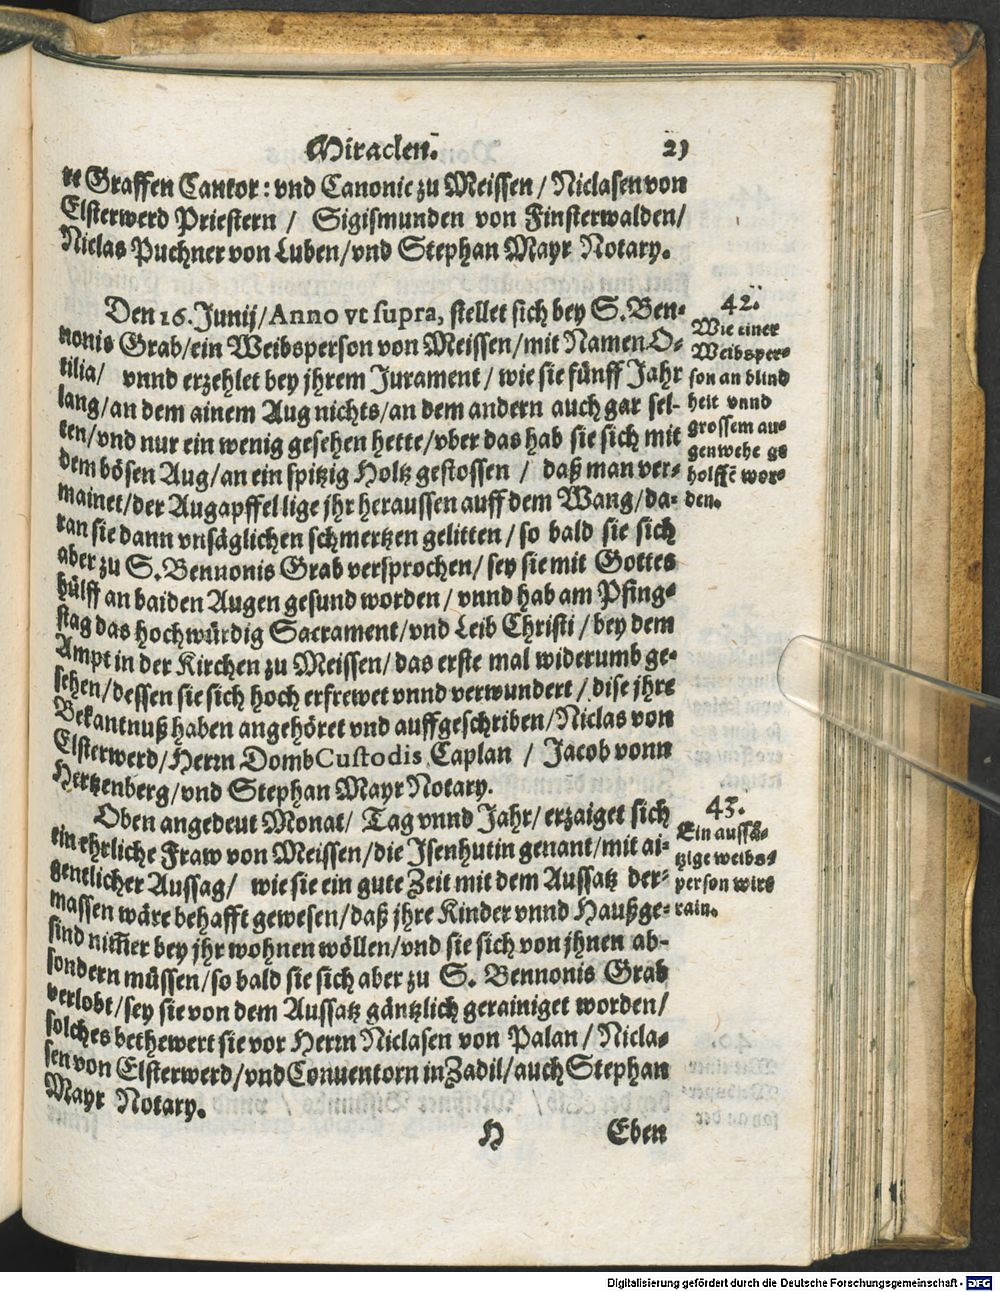 Miraclen. 29
re Graffen Cantor: vnd Canonic zu Meissen / Niclasen von
Elsterwerd Priestern / Sigismunden von Finsterwalden/
Niclas Puchner von Luben/vnd Stephan Mayr Notary.
Den 16. Junij/Anno vt supra, stellet sich bey S. Ben-
nonis Grab/ein Weibsperson von Meissen/mit Namen O-
tilia/ vnnd erzehlet bey jhrem Jurament / wie sie fünff Jahr
lang/an dem ainem Aug nichts/an dem andern auch gar sel-
ten/vnd nur ein wenig gesehen hette/vber das hab sie sich mit
dem bösen Aug/an ein spitzig Holtz gestossen / daß man ver-
mainet/der Augapffel lige jhr heraussen auff dem Wang/da-
ran sie dann vnsäglichen schmertzen gelitten / so bald sie sich
aber zu S. Bennonis Grab versprochen/ sey sie mit Gottes
hülff an baiden Augen gesund worden / vnnd hab am Pfing-
stag das hochwürdig Sacrament/vnd Leib Christi / bey dem
Ampt in der Kirchen zu Meissen/das erste mal widerumb ge-
sehen/dessen sie sich hoch erfrewet vnnd verwundert / dise jhre
Bekantnuß haben angehöret vnd auffgeschriben/Niclas von
Elsterwerd/Herrn DombCustodis Caplan / Jacob vonn
Hertzenberg/vnd Stephan Mayr Notary.
42.
Wie einer
Weibsper-
son an blind
heit vnnd
grossem au-
genwehe ge
holffẽ wor-
den.
Oben angedeut Monat/ Tag vnnd Jahr/ erzaiget sich
ein ehrliche Fraw von Meissen/die Isenhutin genant/mit ai-
gentlicher Aussag/ wie sie ein gute Zeit mit dem Aussatz der-
massen wäre behafft gewesen/daß jhre Kinder vnnd Haußge-
sind nim̃er bey jhr wohnen wöllen/vnd sie sich von jhnen ab-
sondern müssen/so bald sie sich aber zu S. Bennonis Grab
verlobt/sey sie von dem Aussatz gäntzlich gerainiget worden/
solches bethewert sie vor Herrn Niclasen von Palan / Nicla-
sen von Elsterwerd/vnd Conuentorn in Zadil/auch Stephan
Mayr Notary.
43.
Ein aussä-
tzige weibs-
person wirt
rain.
H Eben
Digitalisierung gefördert durch die Deutsche Forschungsgemeinschaft - DFG